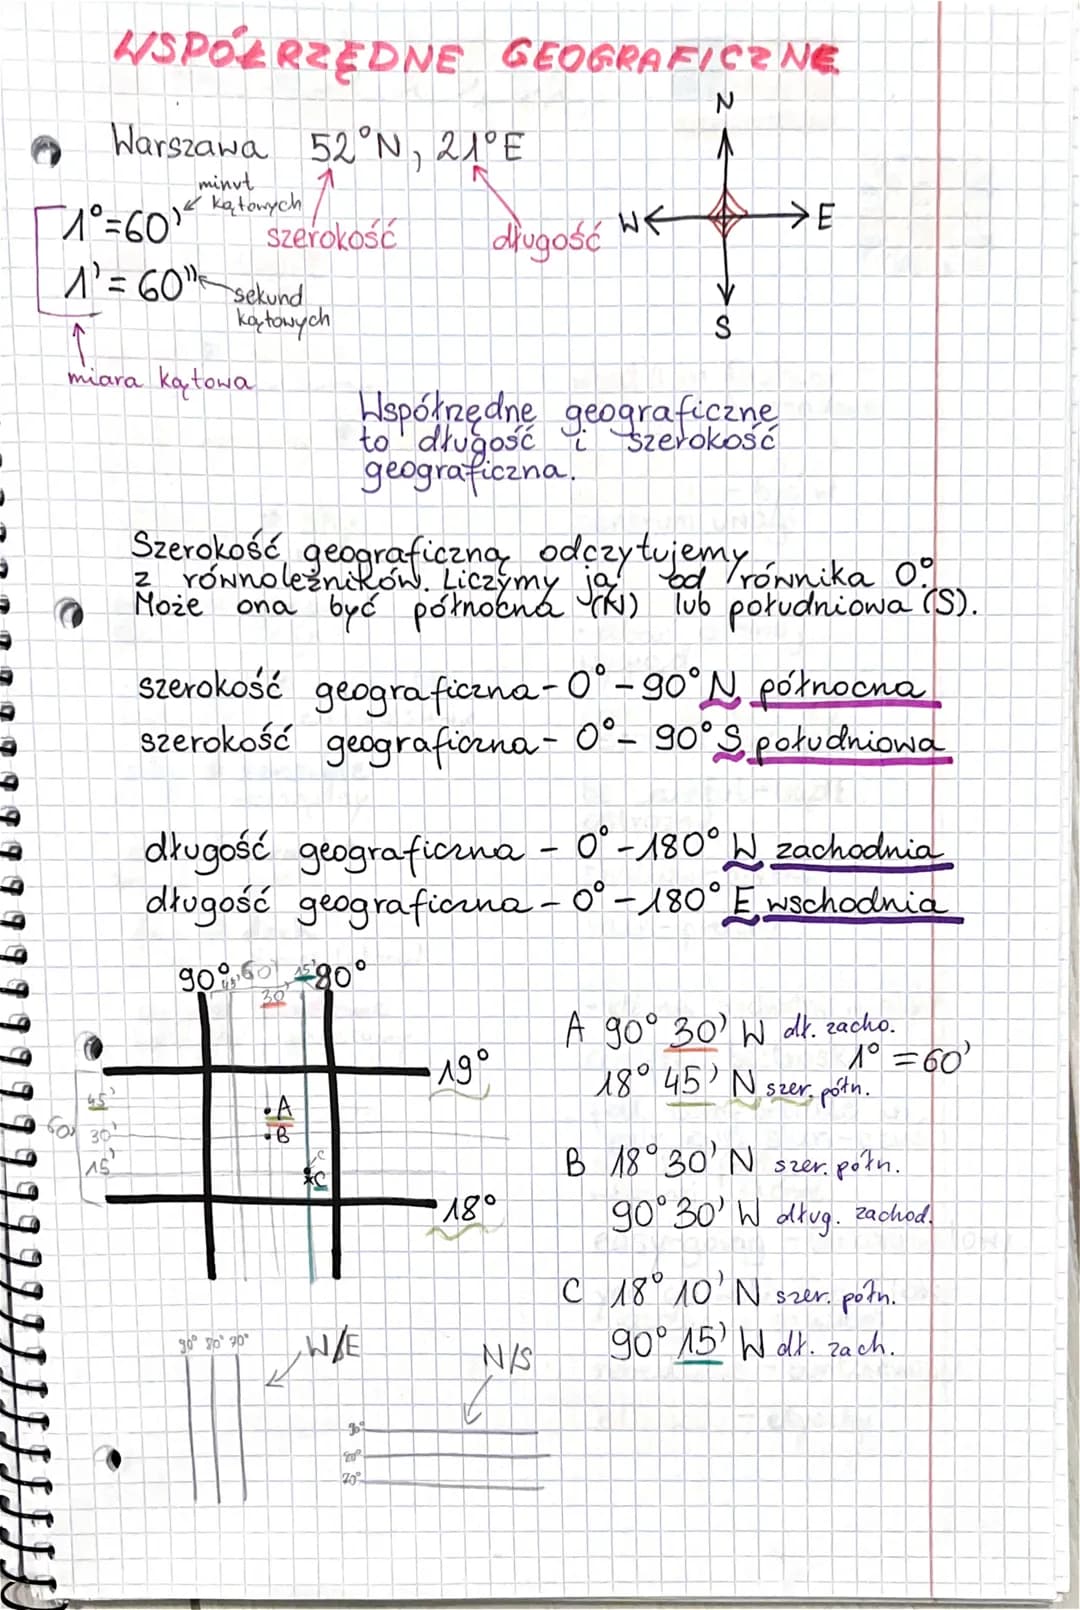 WSPÓŁRZĘDNE GEOGRAFICZNE
N
Warszawa 52°N, 21°E
minut
kątowych
1°=60'
szerokość
długość
W
E
1'=60"
sekund
kątowych
S
miara kątowa
Współrzędne geograficzne
to długość i szerokość
geograficzna.
Szerokość geograficzną odczytujemy
z równoleżników. Liczymy ją od równika 0°.
Może ona być północna (N) lub południowa (S).
szerokość geograficzna - 0° - 90° N północna
szerokość geograficzna - 0° - 90° S południowa
długość geograficzna - 0° - 180° W zachodnia
długość geograficzna - 0° - 180° E wschodnia
90° 45' 60' 15' 90°
30'
A 90° 30' W dł. zacho.
1° = 60'
19°
18° 45' N szer. półn.
45'
A
60' 30'
B
B 18° 30' N szer. półn.
15'
C
C
18°
90° 30' W dług. zachod.
C 18° 10' N szer. półn.
90° 80° 70°
W/E
N/S
90° 15' W dł. zach.
90°
80°
70°